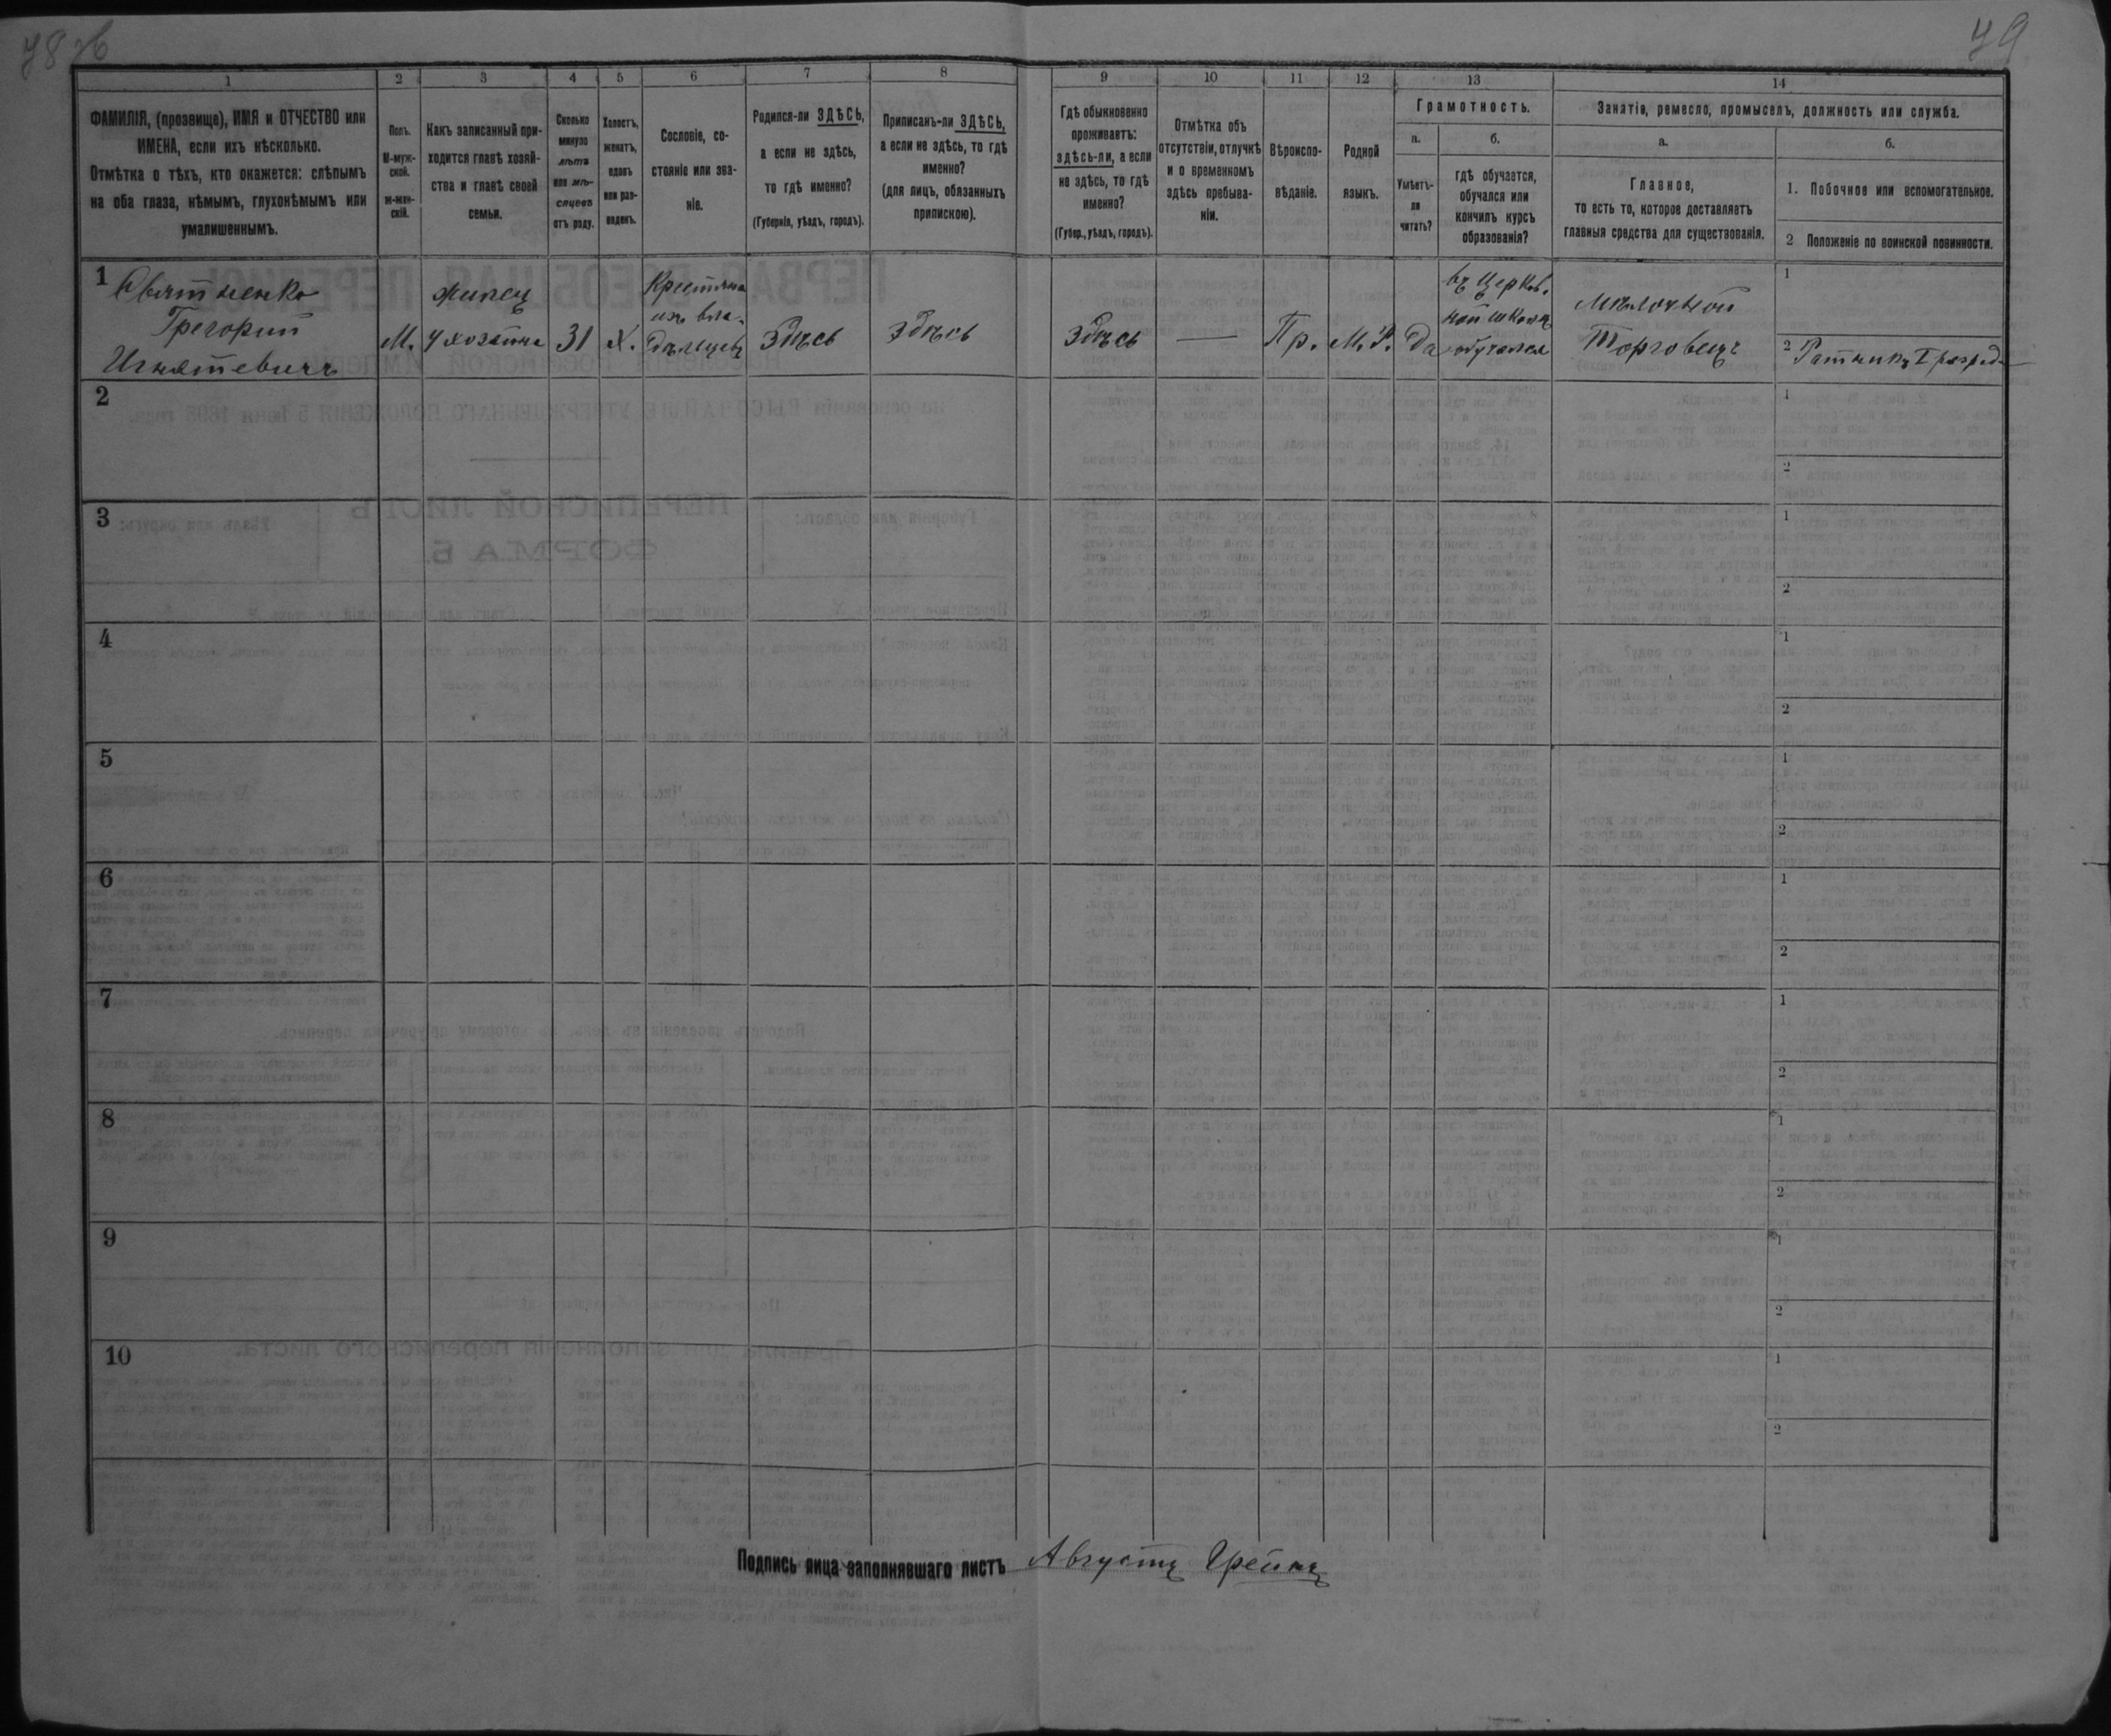 78 об
79
1
2
3
4
5
6
7
8
9
10
11
12
13
14
ФАМИЛІЯ, (прозвище), ИМЯ и ОТЧЕСТВО или
ИМЕНА, если ихъ нѣсколько.
Отмѣтка о тѣхъ, кто окажется: слѣпымъ
на оба глаза, нѣмымъ, глухонѣмымъ или
умалишеннымъ.
Полъ.
М-муж-
ской.
ж-жен-
скій.
Какъ записанный при-
ходится главѣ хозяй-
ства и главѣ своей
семьи.
Сколько
минуло
лѣтъ
или мѣ-
сяцевъ
отъ роду.
Холостъ,
женатъ,
вдовъ
или раз-
веденъ.
Сословіе, со-
стояніе или зва-
ніе.
Родился-ли ЗДѢСЬ,
а если не здѣсь,
то гдѣ именно?
(Губернія, уѣздъ, городъ).
Приписанъ-ли ЗДѢСЬ,
а если не здѣсь, то гдѣ
именно?
(для лицъ, обязанныхъ
припискою).
Гдѣ обыкновенно
проживаетъ:
здѣсь-ли, а если
не здѣсь, то гдѣ
именно?
(Губер., уѣздъ, городъ).
Отмѣтка объ
отсутствіи, отлучкѣ
и о временномъ
здѣсь пребыва-
ніи.
Вѣроиспо-
вѣданіе.
Родной
языкъ.
Грамотность.
а.
Умѣетъ-
ли
читать?
б.
гдѣ обучается,
обучался или
кончилъ курсъ
образованія?
Занятіе, ремесло, промыселъ, должность или служба.
а.
Главное,
то есть то, которое доставляетъ
главныя средства для существованія.
б.
1. Побочное или вспомогательное.
2 Положеніе по воинской повинности.
1
Святненко
Григорий
Игнатевичъ
М.
жилец
у хозяина
31
Х.
Крестьянъ
изъ вла-
дѣльцевъ
Здѣсь
Здѣсь
Здѣсь
—
Пр.
М. Р.
Да
въ церков.
ной школѣ
обучался
Мѣлочной
Торговецъ
1
2 Ратникъ I разряда
2
1
2
3
1
2
4
1
2
5
1
2
6
1
2
7
1
2
8
1
2
9
1
2
10
1
2
Подпись лица заполнявшаго листъ Августъ